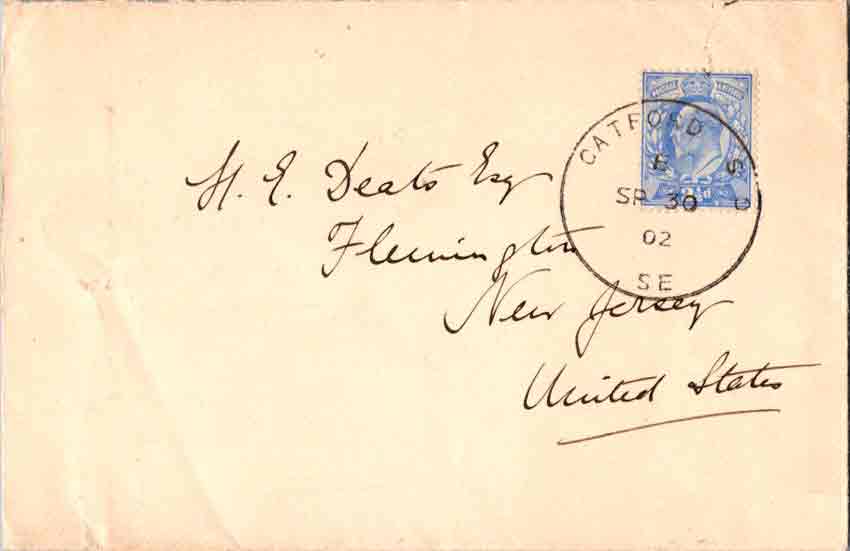 H. E. Deats Esq
Flemington
New Jersey
United States
CATFORD S O
E
SP 30
02
SE
2½d